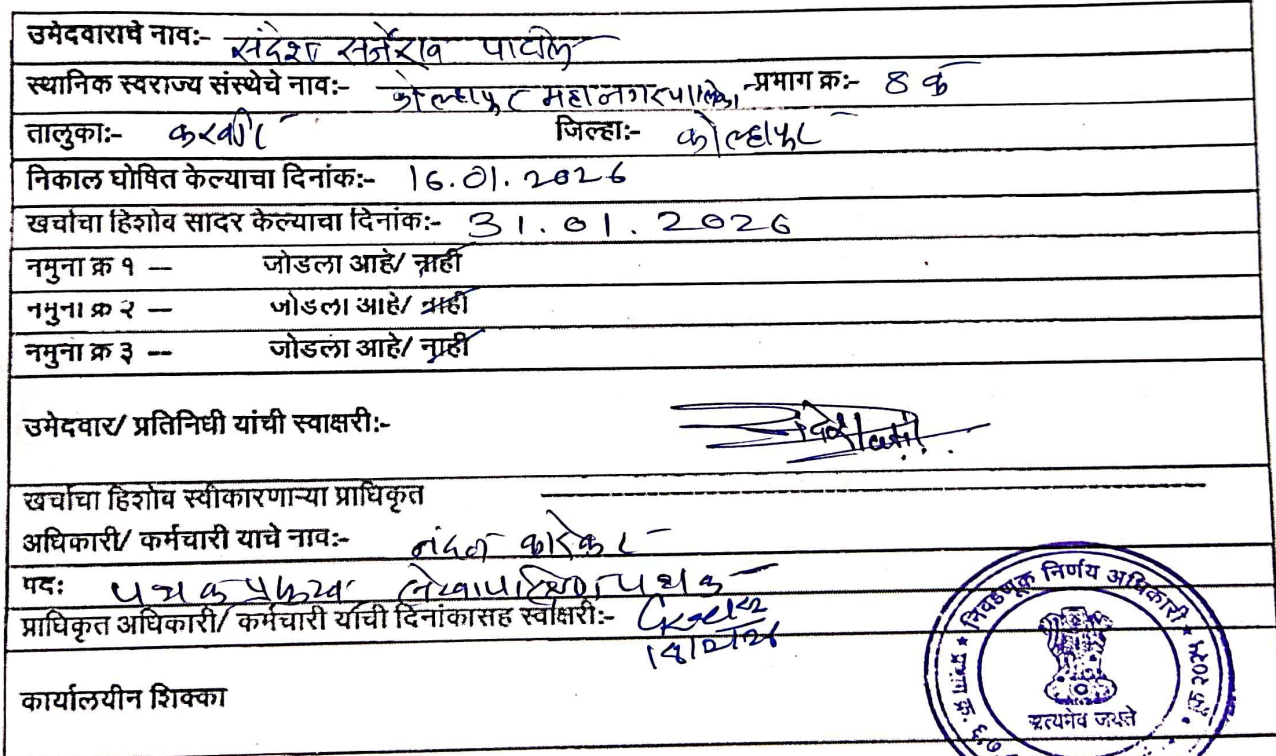 उमेदवाराचे नाव:- संदेश सर्जेराव पाटील
स्थानिक स्वराज्य संस्थेचे नाव:- कोल्हापूर महानगरपालिका, -प्रभाग क्र:- 8 क
तालुका:- करवीर जिल्हा:- कोल्हापूर
निकाल घोषित केल्याचा दिनांक:- 16.01.2026
खर्चाचा हिशोब सादर केल्याचा दिनांक:- 31.01.2026
नमुना क्र १ -- जोडला आहे/ नाही
नमुना क्र २ -- जोडला आहे/ नाही
नमुना क्र ३ -- जोडला आहे/ नाही
उमेदवार/ प्रतिनिधी यांची स्वाक्षरी:-
खर्चाचा हिशोब स्वीकारणाऱ्या प्राधिकृत
अधिकारी/ कर्मचारी याचे नाव:- नंदन कारेकर
पद: पथक प्रमुख लेखापरिक्षण पथक
प्राधिकृत अधिकारी/ कर्मचारी यांची दिनांकासह स्वाक्षरी:-
कार्यालयीन शिक्का
निवडणूक निर्णय अधिकारी
सत्यमेव जयते